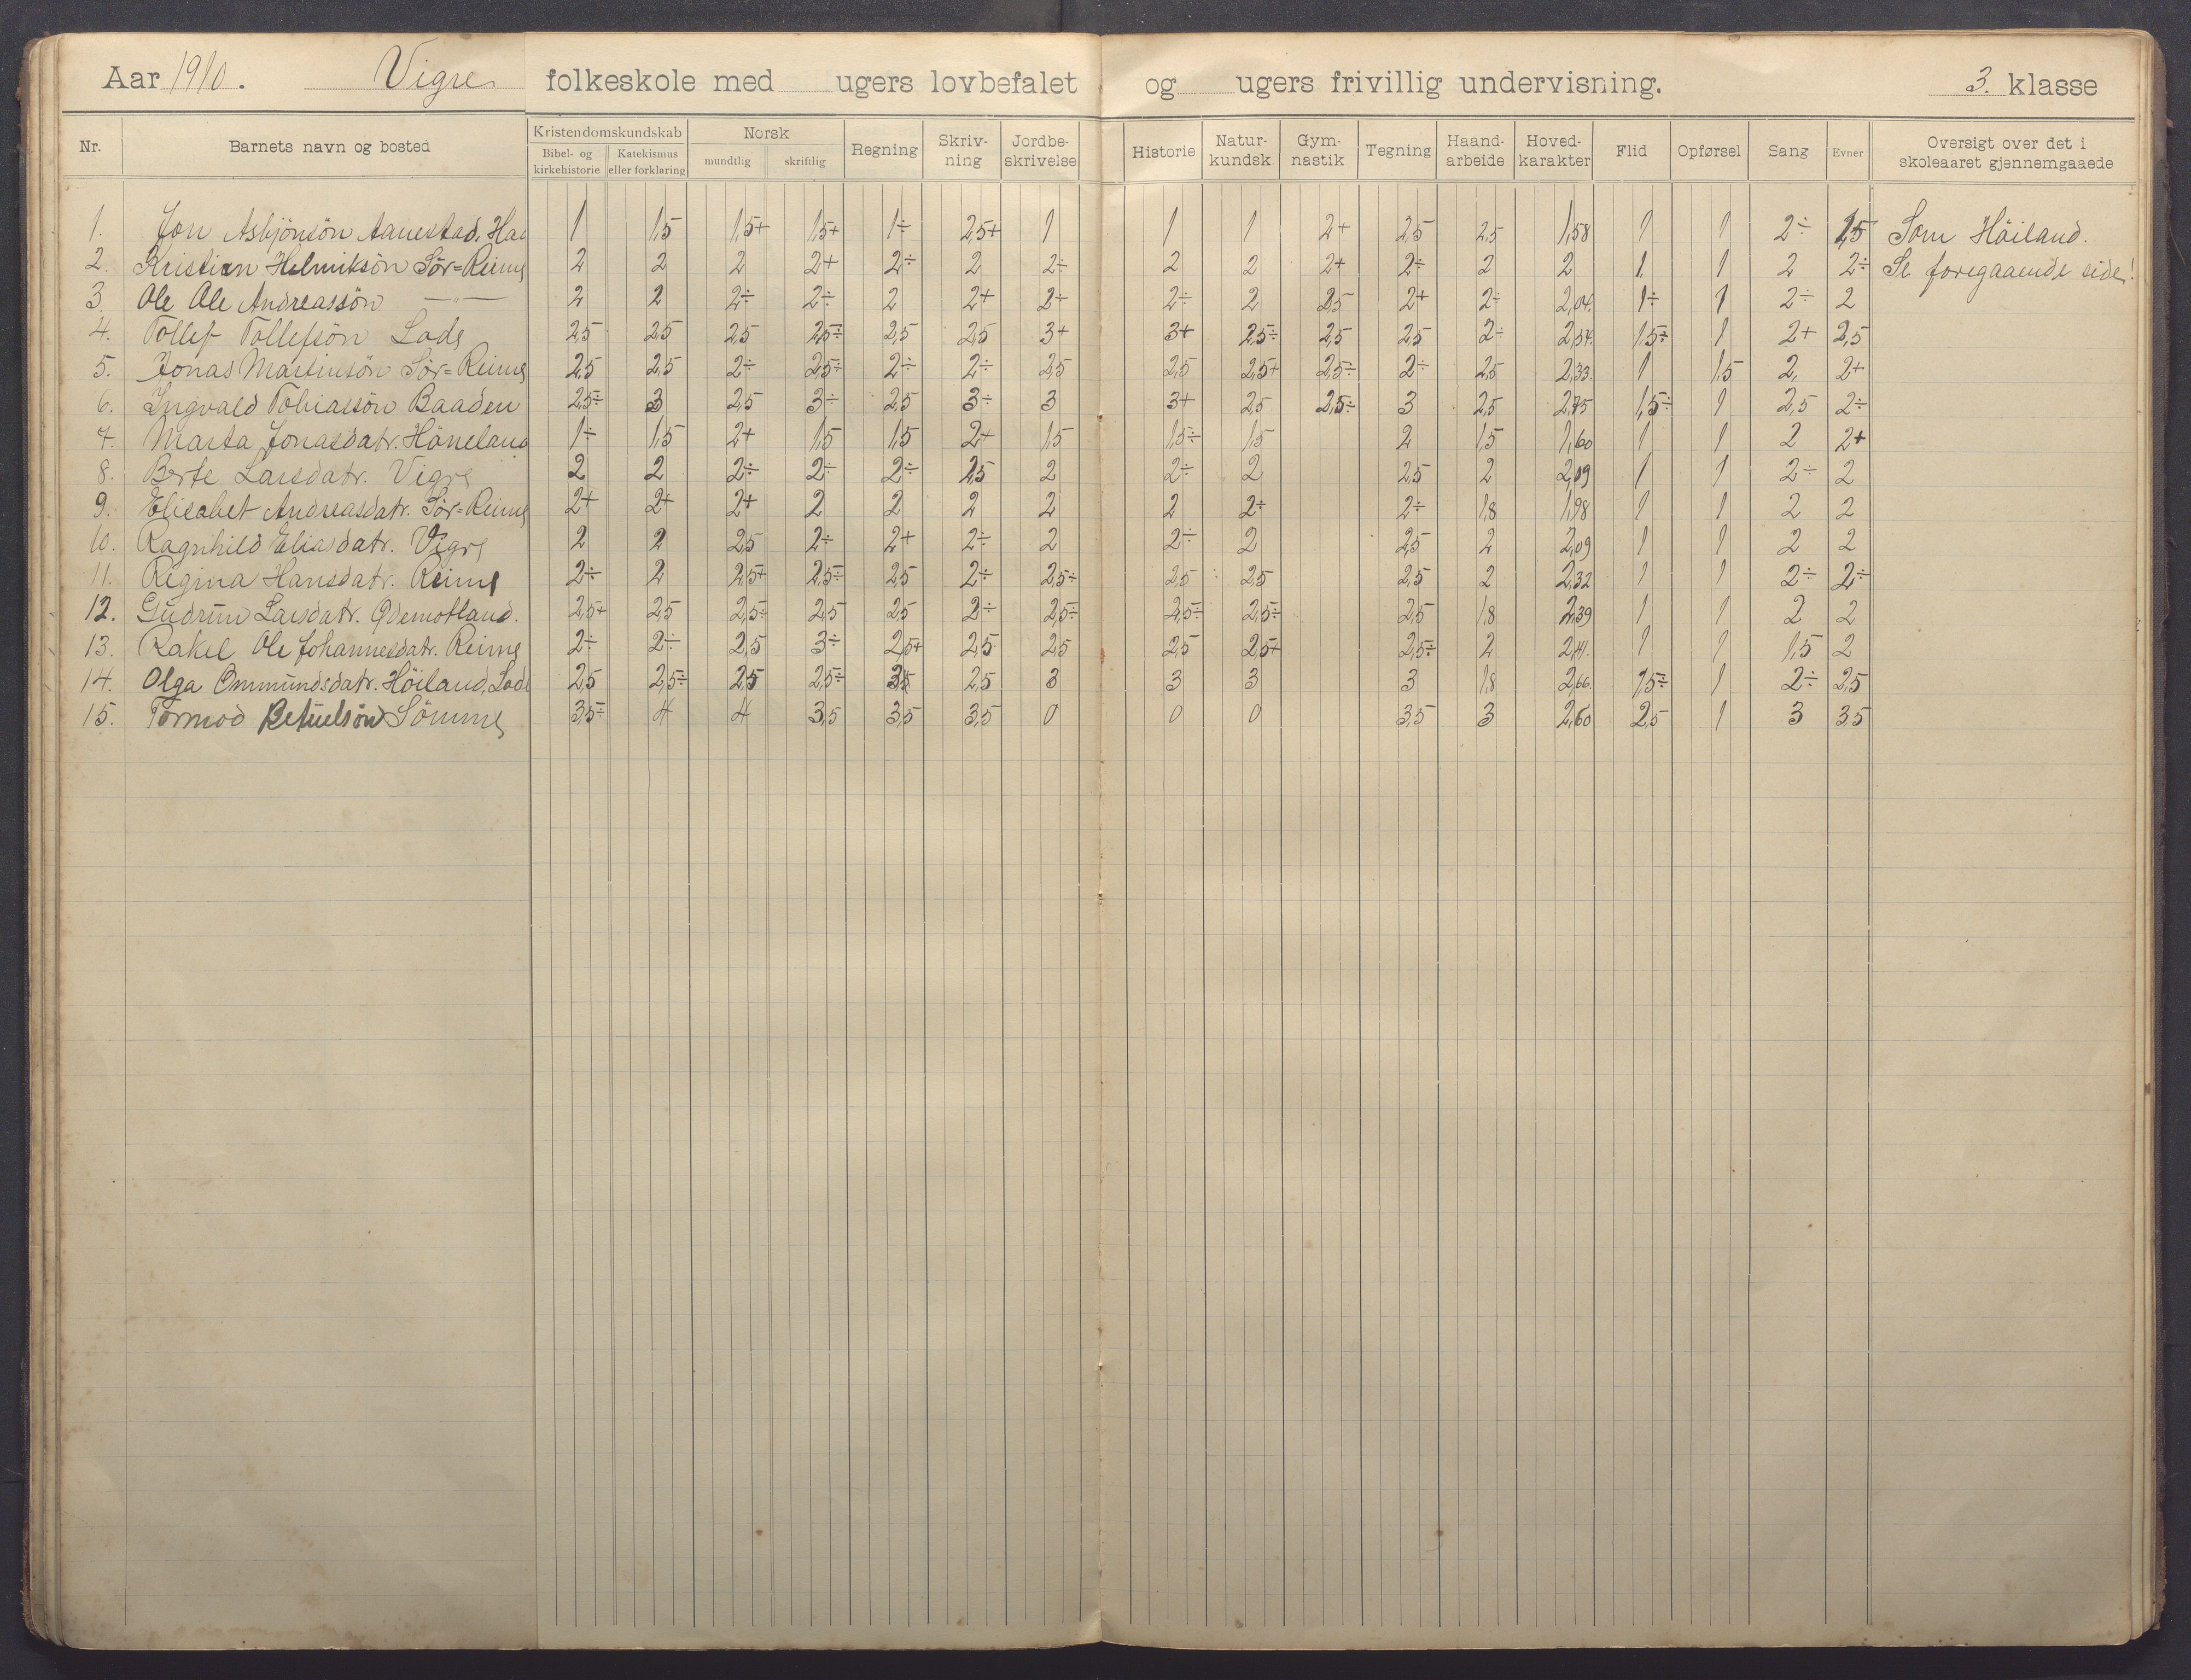 Aar 1910. Vigre folkeskole med ugers lovbefalet og ugers frivillig undervisning. 3. klasse
Nr. Barnets navn og bosted Kristendomskundskab Bibel- og kirkehistorie Katekismus eller forklaring Norsk mundtlig skriftlig Regning Skriv-ning Jordbe-skrivelse Historie Natur-kundsk. Gym-nastik Tegning Haand-arbeide Hoved-karakter Flid Opførsel Sang Evner Oversigt over det i skoleaaret gjennemgaaede
1. Jon Asbjönsön Aanestad, 1 1,5 1,5+ 1,5+ 1÷ 2,5+ 1 1 1 2+ 2,5 2,5 1,58 1 1 2÷ 1,5 Som Höiland.
2. Kristian Helmiksön Sör=Reime 2 2 2 2+ 2÷ 2 2÷ 2 2 2+ 2÷ 2 2 1 1 2 2÷ Se foregaaende side!
3. Ole Ole Andreassön —„— 2 2 2÷ 2÷ 2 2+ 2÷ 2÷ 2 2,5 2+ 2÷ 2,04. 1÷ 1 2÷ 2
4. Tollef Tollefsön Lode 2,5 2,5 2,5 2,5÷ 2,5 2,5 3+ 3+ 2,5÷ 2,5 2,5 2÷ 2,54. 1,5÷ 1 2+ 2,5
5. Jonas Martinsön Sör=Reime 2,5 2,5 2÷ 2,5÷ 2÷ 2÷ 2,5 2,5 2,5+ 2,5÷ 2÷ 2,5 2,33. 1 1,5 2, 2+
6. Ingvald Tobiassön Baaden 2,5÷ 3 2,5 3÷ 2,5 3÷ 3 3+ 2,5 2,5÷ 3 2,5 2,75 1,5÷ 1 2,5 2÷
7. Marta Jonasdatr. Håneland 1÷ 1,5 2+ 1,5 1,5 2+ 1,5 1,5÷ 1,5 2 1,5 1,60 1 1 2 2+
8. Berte Larsdatr. Vigre 2 2 2÷ 2÷ 2÷ 2,5 2 2÷ 2 2,5 2 2,09 1 1 2÷ 2
9. Elisabet Andreasdatr. Sör=Reime 2+ 2+ 2+ 2 2 2 2 2 2+ 2÷ 1,8 1,98 1 1 2 2
10. Ragnhild Eliasdatr. Vigre 2 2 2,5 2÷ 2+ 2÷ 2 2÷ 2 2,5 2 2,09 1 1 2 2
11. Regina Hansdatr. Reime 2÷ 2 2,5+ 2,5÷ 2,5 2÷ 2,5÷ 2,5 2,5 2,5 2 2,32 1 1 2÷ 2÷
12. Gudrun Larsdatr. Ödemotland. 2,5+ 2,5 2,5÷ 2,5 2,5 2÷ 2,5÷ 2,5÷ 2,5÷ 2,5 1,8 2,39 1 1 2 2
13. Rakel Ole Johannesdatr. Reime 2÷ 2÷ 2,5 3÷ 2,5+ 2,5 2,5 2,5 2,5+ 2,5÷ 2 2,41. 1 1 1,5 2
14. Olga Ommundsdatr. Höiland, Lode 2,5 2,5÷ 2,5 2,5÷ 2,5 3 3 3 3 1,8 2,66. 1,5÷ 1 2÷ 2,5
15. Tormod Betuelsön Sömme 3,5÷ 4 4 3,5 3,5 3,5 0 0 0 3,5 3 2,60 2,5 1 3 3,5